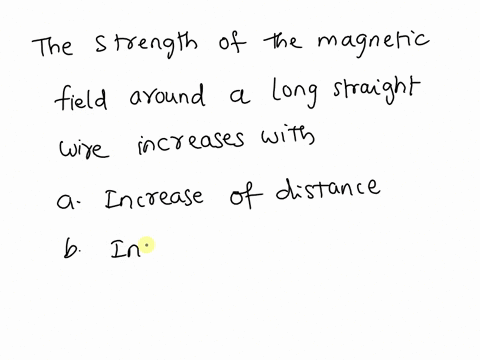 The strength of the magnetic
field around a long straight
wire increases with
a. Increase of distance
b. In